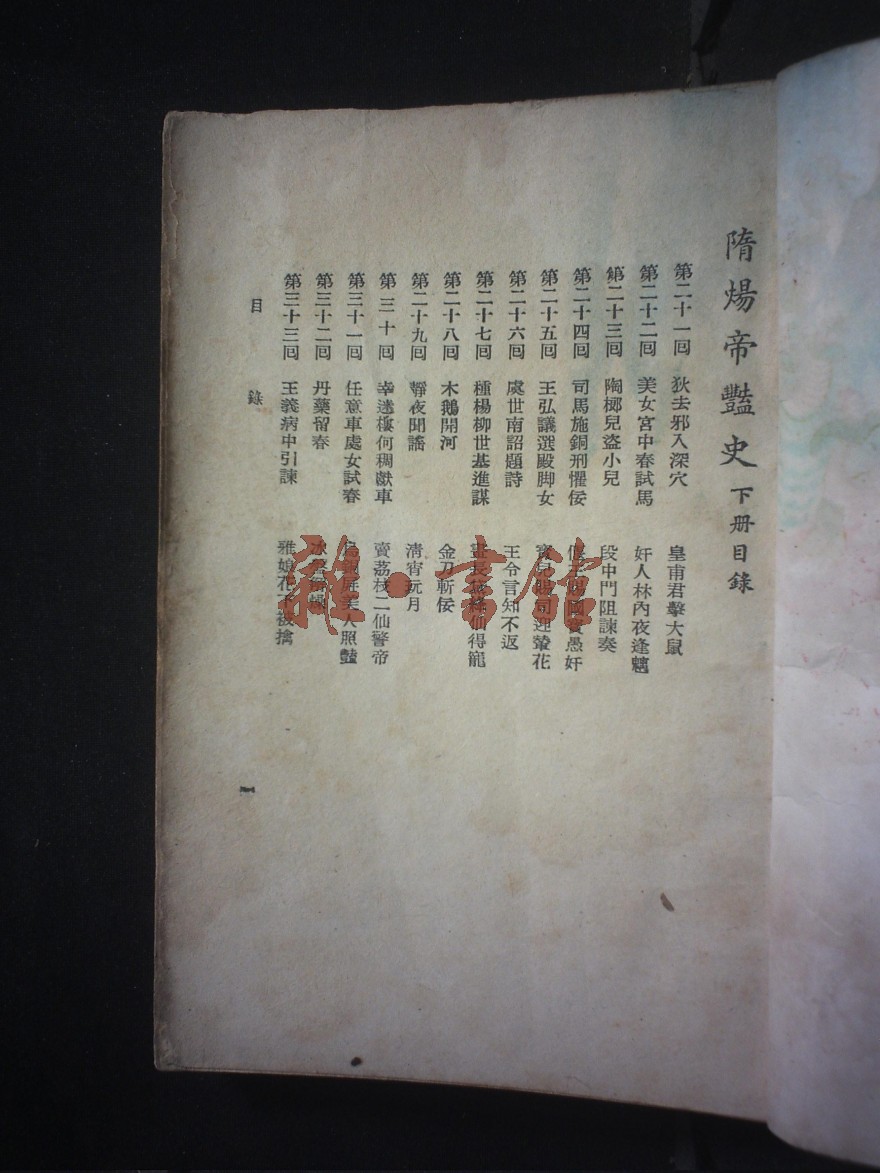 隋煬帝豔史 下册目錄
第二十一回 狄去邪入深穴 皇甫君擊大鼠
第二十二回 美女宮中春試馬 奸人林內夜逢魑
第二十三回 陶榔兒盜小兒 段中門阻諫奏
第二十四回 司馬施銅刑懼佞 偃王賜國寶愚奸
第二十五回 王弘議選殿脚女 寶兒賜司迎輦花
第二十六回 虞世南詔題詩 王令言知不返
第二十七回 種楊柳世基進謀 畫長黛絳仙得寵
第二十八回 木鵝開河 金刀斬佞
第二十九回 靜夜聞謠 清宵玩月
第三十回 幸迷樓何稠獻車 賣荔枝二仙警帝
第三十一回 任意車處女試春 烏銅屏美人照豔
第三十二回 丹藥留春 冰盤解燥
第三十三回 王義病中引諫 雅娘花下被擒
目錄
一
雜·書館